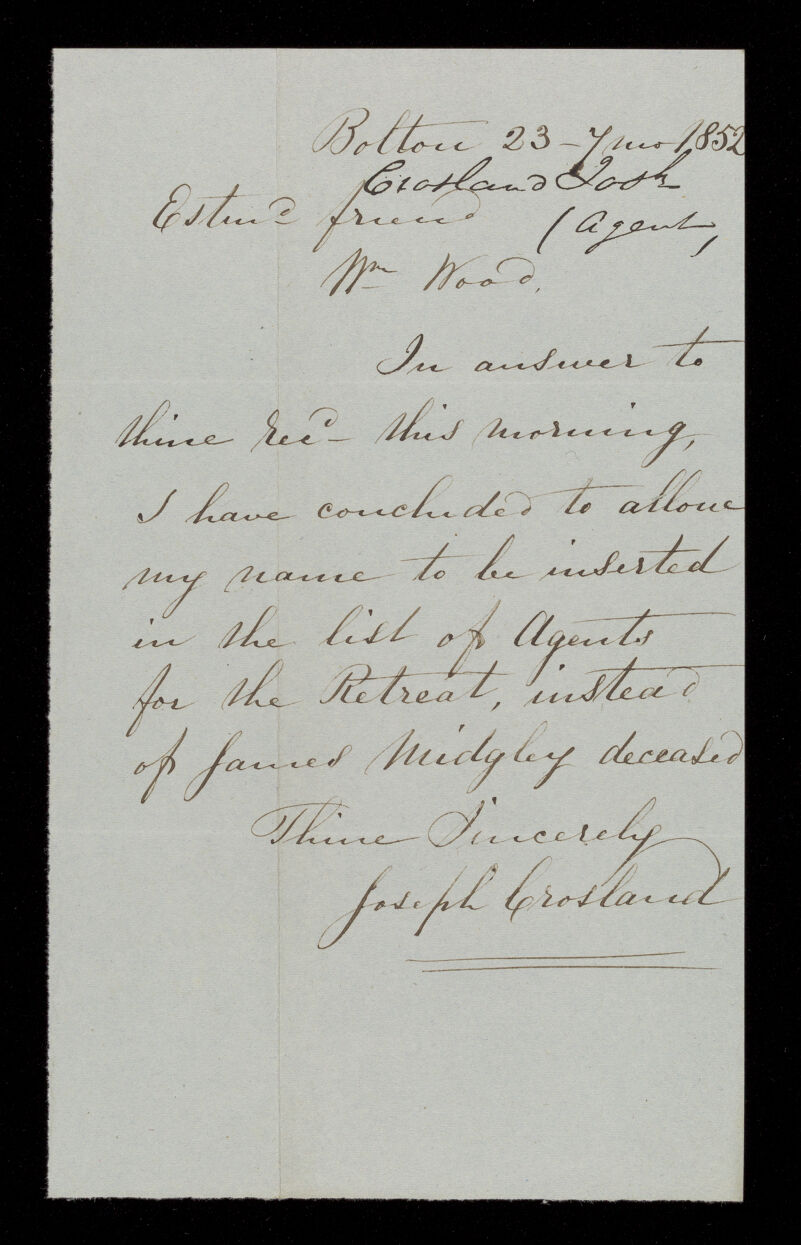 Bolton 23 - 7 mo 1852
Crosland Josh
Estmd friend (Agent,
Wm Wood,
In answer to
thine recd - this morning,
I have concluded to allow
my name to be inserted
in the list of Agents
for the Retreat, instead
of James Midgley deceased
Thine Sincerely
Joseph Crosland